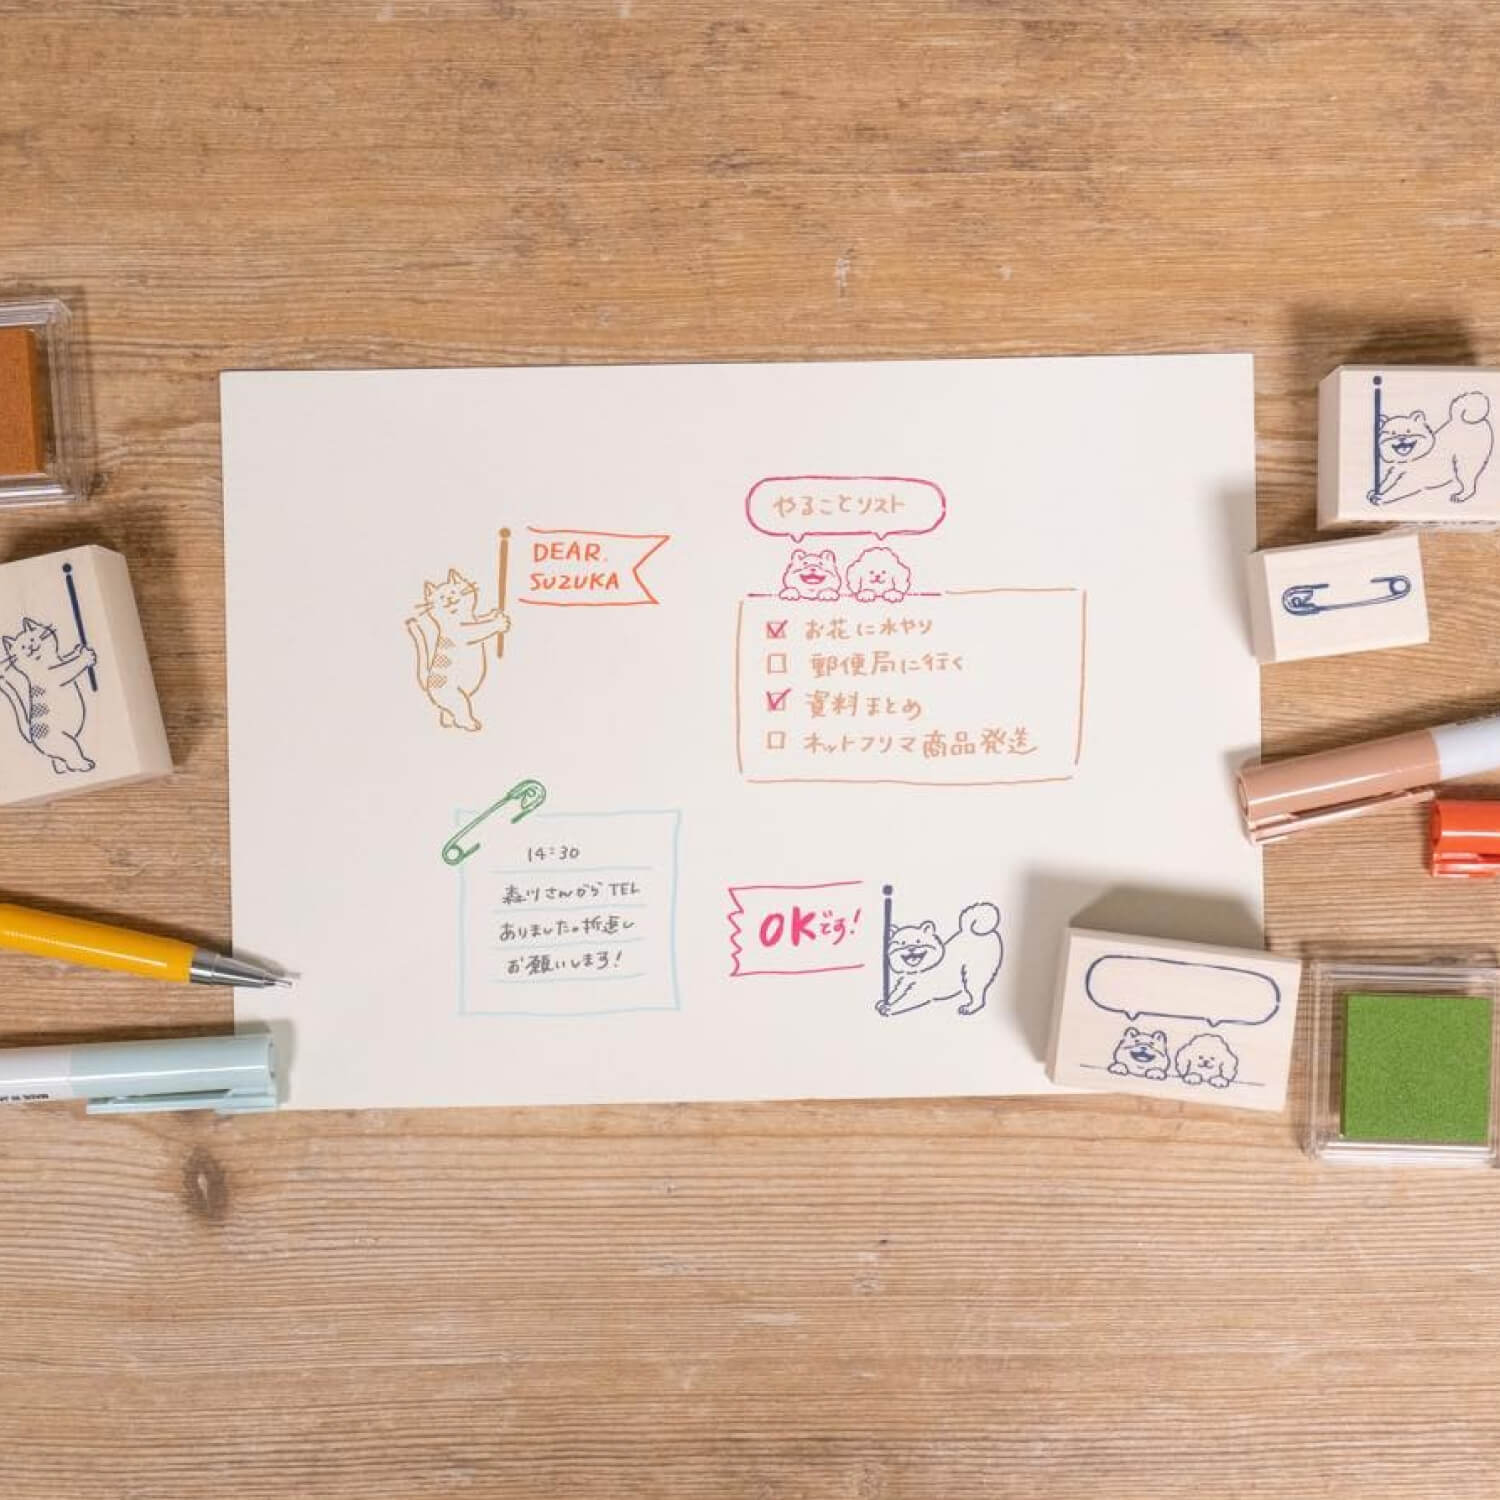 DEAR.
SUZUKA
やることリスト
お花に水やり
郵便局に行く
資料まとめ
ネットフリマ商品発送
14:30
森川さんからTEL
ありました。折返し
お願いします!
OKです!